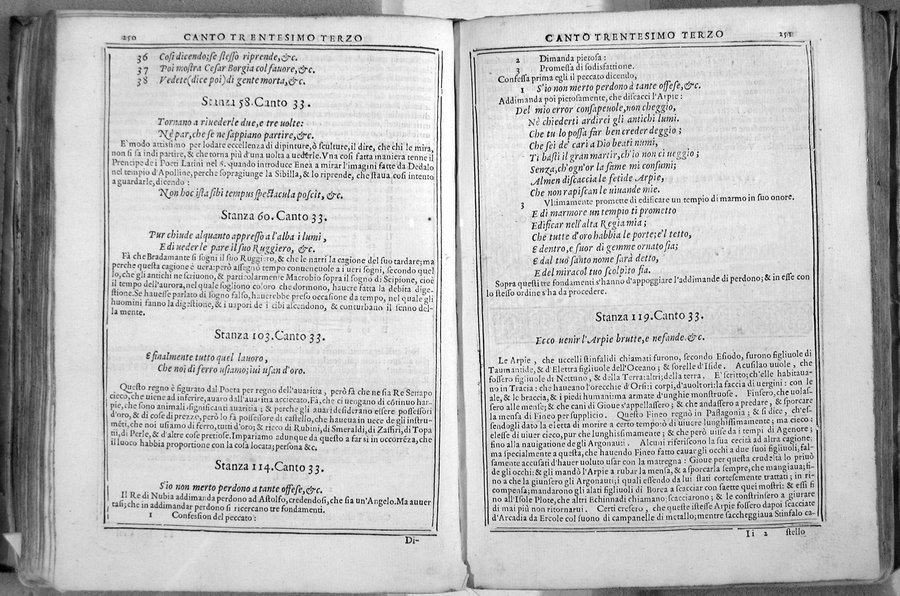 250 CANTO TRENTESIMO TERZO
36 Così dicendo; se stesso riprende, &c.
37 Poi mostra Cesar Borgia col fauore, &c.
38 Vedete (dice poi) di gente morta, &c.
Stanza 58. Canto 33.
Tornano a riuederle due, e tre uolte:
Nè par, che se ne sappiano partire, &c.
E modo attissimo per lodare eccellenza di dipinture, ò sculture, il dire, che chi le mira,
non si sa indi partire, & che torna più d'una uolta a uederle. Vna cosi fatta maniera tenne il
Prencipe de i Poeti Latini nel 6. quando introduce Enea a mirar l'imagini fatte da Dedalo
nel tempio d'Apolline, perche sopragiunge la Sibilla, & lo riprende, che staua cosi intento
a guardarle, dicendo:
Non hoc ista sibi tempus spectacula poscit, &c.
Stanza 60. Canto 33.
Pur chiude alquanto appresso a l'alba i lumi,
E di ueder le pare il suo Ruggiero, &c.
Fà che Bradamante si sogni il suo Ruggiero, & che le narri la cagione del suo tardare; ma
perche questa cagione è uera; però assegnò tempo conueneuole a i ueri sogni, secondo quel
lo, che gli antichi ne scriuono, & particolarmente Macrobio sopra il sogno di Scipione, cioè
il tempo dell'aurora, nel quale sogliono coloro che dormono, hauere fatta la debita dige-
stione. Se hauesse parlato di sogno falso, hauerebbe preso occasione da tempo, nel quale gli
huomini fanno la digestione, & i uapori de i cibi ascendono, & conturbano il senno del-
la mente.
Stanza 103. Canto 33.
E finalmente tutto quel lauoro,
Che noi di ferro usiano; iui usan d'oro.
Questo regno è figurato dal Poeta per regno dell'auaritia, però fà che ne sia Re Senapo
cieco, che uiene ad inferire, auaro dall'auaritia acciecato. Fà, che ci uengano di continuo l'ar-
pie, che sono animali significanti auaritia; & perche gli auari desiderano essere possessori
d'oro, & di cose di prezzo, però lo fà possessore di castello, che haueua in uece de gli instru-
mēti, che noi usiamo di ferro, tutti d'oro; & ricco di Rubini, di Smeraldi, di Zaffiri, di Topa
tij, di Perle, & d'altre cose pretiose. Impariamo adunque da questo a far si in occorrēza, che
il luoco habbia proportione con la cosa locata; persona &c.
Stanza 114. Canto 33.
S'io non merto perdono a tante offese, &c.
Il Re di Nubia addimanda perdono ad Astolfo, credendosi, che sia un'Angelo. Ma auuer
tasi; che in addimandar perdono si ricercano tre fondamenti.
1 Confession del peccato:
Di-
CANTO TRENTESIMO TERZO 251
2 Dimanda pietosa:
3 Promessa di sodisfattione.
Confessa prima egli il peccato dicendo,
1 S'io non merto perdono à tante offese, &c.
Addimanda poi pietosamente, che discacci l'Arpie:
Del mio error consapeuole, non cheggio,
Nè chiederti ardirei gli antichi lumi.
Che tu lo possa far ben creder deggio;
Che sei de' cari a Dio beati numi,
Ti basti il gran martir, ch'io non ci ueggio;
Senza, ch'ogn'or la fame mi consumi;
Almen discaccia le fetide Arpie,
Che non rapiscan le uiuande mie.
3 Vltimamente promette di edificare un tempio di marmo in suo onore.
E di marmore un tempio ti prometto
Edificar nell'alta Regia mia;
Che tutte d'oro habbia le porte; e'l tetto,
E dentro, e fuor di gemme ornato sia;
E dal tuo santo nome sarà detto,
E del miracol tuo scolpito sia.
Sopra questi tre fondamenti s'hanno d'appoggiare l'addimande di perdono; & in esse con
lo stesso ordine s'ha da procedere.
Stanza 119. Canto 33.
Ecco uenir l'Arpie brutte, e nefande. &c.
Le Arpie, che uccelli stinfalidi chiamati furono, secondo Esiodo, furono figliuole di
Taumantide, & d'Elettra figliuole dell'Oceano; & sorelle d'Iside. Acusilao uuole, che
fossero figliuole di Nettuno, & della Terra: altri; della terra. E' scritto; ch'elle habitaua-
no in Tracia: che haueano l'orecchie d'Orsi: i corpi, d'auoltori: la faccia di uergini: con le
ale, & le braccia, & i piedi humani: ma armate d'unghie monstruose. Finsero, che uolas-
sero alle mense; & che cani di Gioue s'appellassero; & che andassero a predare, & sporcare
la mensa di Fineo per supplicio. Questo Fineo regnò in Paflagonia; & si dice, ch'es-
sendogli dato la eletta di morire a certo tempo; ò di uiuere lunghissimamente; ma cieco:
elesse di uiuer cieco, pur che lunghissimamente; & che però uisse da i tempi di Agenore;
sino alla nauigatione degli Argonauti. Alcuni riferiscono la sua cecità ad altra cagione,
ma specialmente a questa, che hauendo Fineo fatto cauar gli occhi a due suoi figliuoli, fal-
samente accusati d'hauer uoluto usar con la matregna: Gioue per questa crudeltà lo priuò
de gli occhi; & gli mandò l'Arpie a rubar la mensa, & a sporcarla sempre, che mangiaua; fi-
no a che là giunsero gli Argonauti; i quali essendo da lui stati cortesemente trattati; in ri-
compensa; mandarono gli alati figliuoli di Borea a scacciar con saette quei mostri: & essi fi
no all'Isole Plote, che altri Echinnadi chiamano: scacciarono; & le constrinsero a giurare
di mai più non ritornarui. Certi cresero, che queste istesse Arpie fossero dapoi scacciate
d'Arcadia da Ercole col suono di campanelle di metallo; mentre saccheggiaua Stinfalo ca-
Ii 2 stello